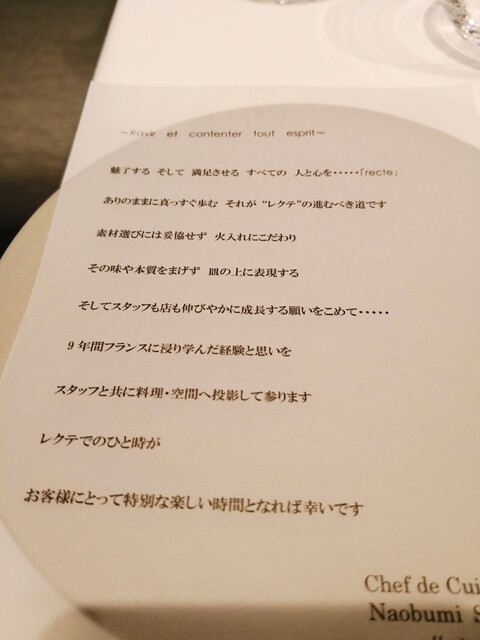 ～Ravir et contenter tout esprit～
魅了する そして 満足させる すべての 人と心を・・・・・「recte」
ありのままに真っすぐ歩む それが “レクテ”の進むべき道です
素材選びには妥協せず 火入れにこだわり
その味や本質をまげず 皿の上に表現する
そしてスタッフも店も伸びやかに成長する願いをこめて・・・・・
9年間フランスに浸り学んだ経験と思いを
スタッフと共に料理・空間へ投影して参ります
レクテでのひと時が
お客様にとって特別な楽しい時間となれば幸いです
Chef de Cui
Naobumi S